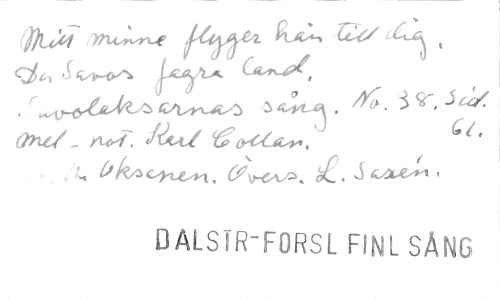 Mitt minne flyger hän till dig,
Du Savos fagra land,
Savolaksarnas sång. No. 38. Sid. 61.
mel-not. Karl Collan.
Oksanen. Övers. L. Saxén.
DALSTR-FORSL FINL SÅNG